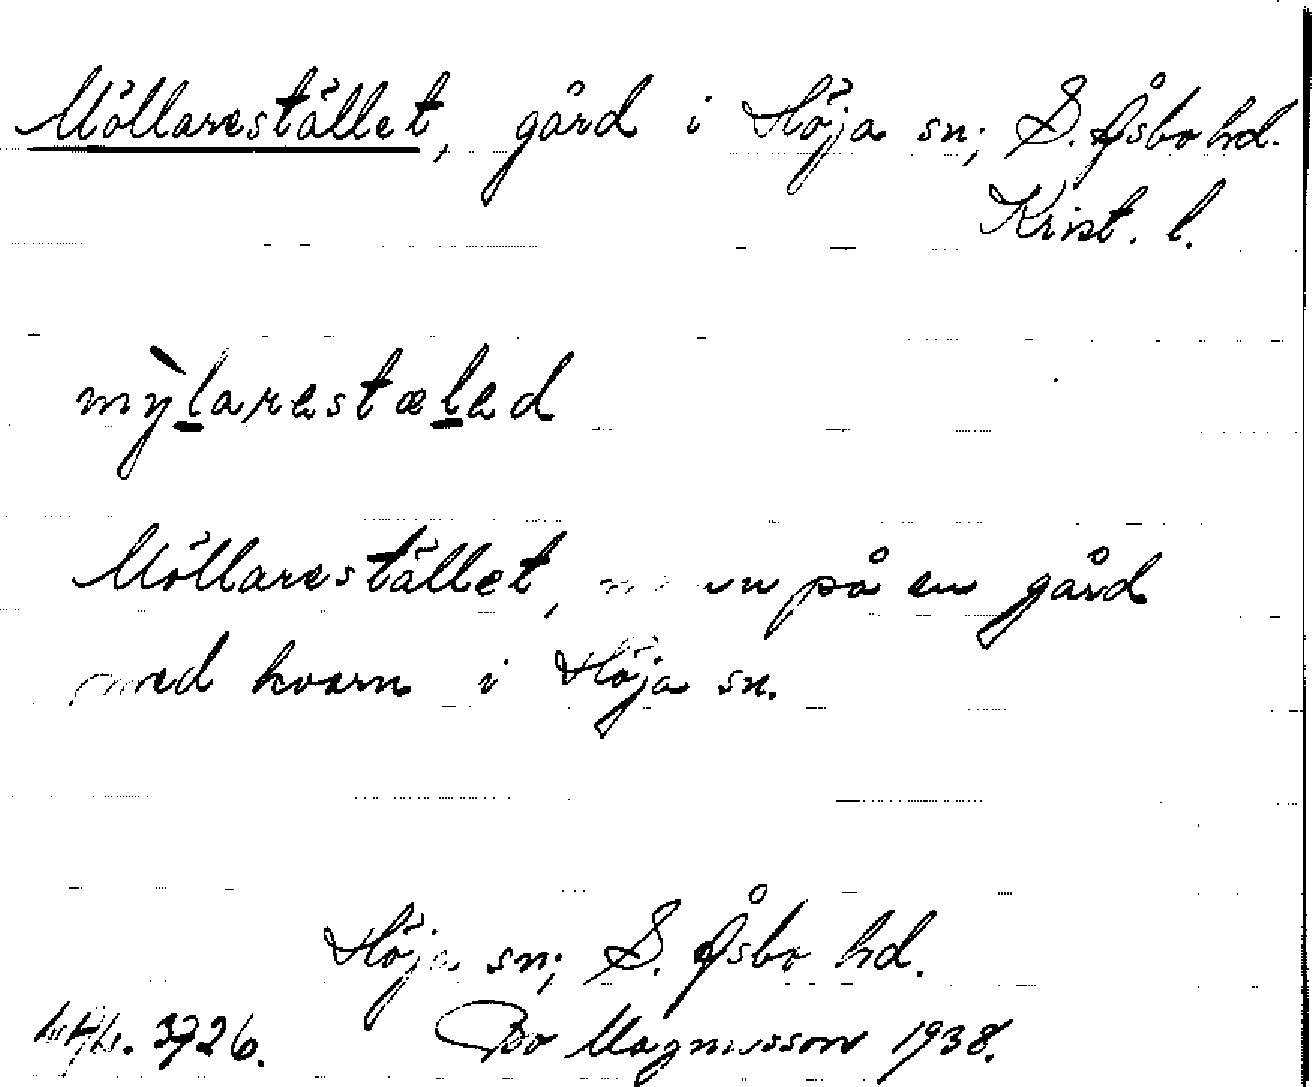 Möllarestället, gård i Höja sn; S. Åsbo hd.
Krist. l.
mỳlarestæled
Möllarestället, på en gård
med kvarn i Höja sn.
Höja sn; S. Åsbo hd.
3726. Bo Magnusson 1938.